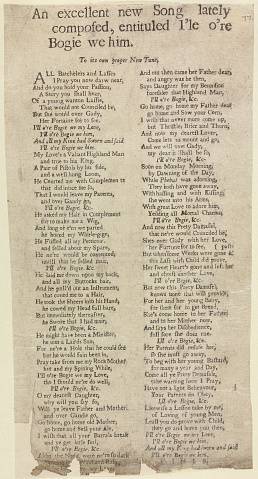 An excellent new Song lately
composed, entituled I'le o're
Bogie we him.
To its own proper New Tune,
ALL Batchelors and Lasses
I Pray you now draw near,
And do you hold your Passion,
A Story you shall hear,
Of a young wanton Lassie,
That would not Councelled be,
But she would over Gady,
Her Fortune for to see.
I'll o're Bogie we my Love,
I'll o're Bogie we him,
And all my Kind had sworn and said
I'll o're Bogie we him.
My Love's a Valiant Highland Man
and true to his King,
A Pair of Pistols by his side,
and a well hung
He Courted me with Complement
that did intice me so,
That I would leave my Parents,
and over Gaudy go,
I'll o're Bogie, &c.
He asked my Hair in Complement
for to make me a Wig,
And long or e're we parted
he
He Fissled all my Petticoat,
and
He ne're would be contented
untill that he
I'll o're Bogie, &c.
He laid me down upon my back,
and all my Buttocks bair,
And he pull'd out an Instrument,
that cured me to a Hair,
He took the Blewer left his Hand,
he cowed my Head full bare,
But immediatly thereafter,
he Swore that I had mair.
I'll o're Bogie, &c.
He might have been a Mariner,
he was a Lairds Son,
For ne're a Hole that he could see
but he would fain been in,
Pray take from me my Rock
and my Spinning While,
I'll o're Bogie we my Love,
tho I should ne're do well,
I'll o're Bogie, &c.
O my dearest Daughter,
why will you say so,
Will ye leave Father and Mother,
and over Gaudie go,
Go home, go home old Mother,
go home and sell your ale,
I wish that all your Barrals break
and ye get little sail,
I'll o're Bogie, &c.
And out then came her Father dear,
and angry was he then,
Says Daughter for my Benefite
forsake that Highland Man,
I'll o're Bogie, &c.
Go home, go home my Father dear,
go home and Sow your Corn,
I wish that never more come up,
but Thristles, Brier and Thorn;
And now my dearest Lover,
Come lets us mount and go,
And we will over Gady,
my dear it shall be so,
I'll o're Bogie, &c.
Soon on Monday Morning,
by Dawning of the Day,
While Phebus was adorning,
They both have gone away,
With hassing and with Kissing,
she went into his Arms,
With great Love to adore him,
Yeilding all Mortal Charms,
I'll o're Bogie, &c.
And now this Pretty Dansfel,
that ne're would Councelled be,
Shes over Gady with her Love,
her Fortune for to see,
But when some Weeks were gone &
this Lass with Child did prove
Her Sweet Heart's gone and left her
and chused another Love,
I'll o're Bogie, &c.
But now this Pretty Damsel,
knows none that will provide,
For her and her young Bairy,
for them for to get Bread,
She's come home to her Father
and to her Mother now,
And says her Disobedience,
full sore she does rue.
I'll o're Bogie, &c.
Her Parents did refuse her,
so she must go away,
To beg with her young Bastard,
for many a year and Day,
Come all ye Pretty Damsels,
take warning from I Pray,
Have not a light Behaviour,
Your Parents do Obey,
I'll o're Bogie, &c.
Likewise a Lesson take by me,
of Loving of young Men,
Least you do prove with Child,
they go and leave you then,
I'll o're Bogie we my Love,
I'll o're Bogie we him,
And all my King had sworn and said